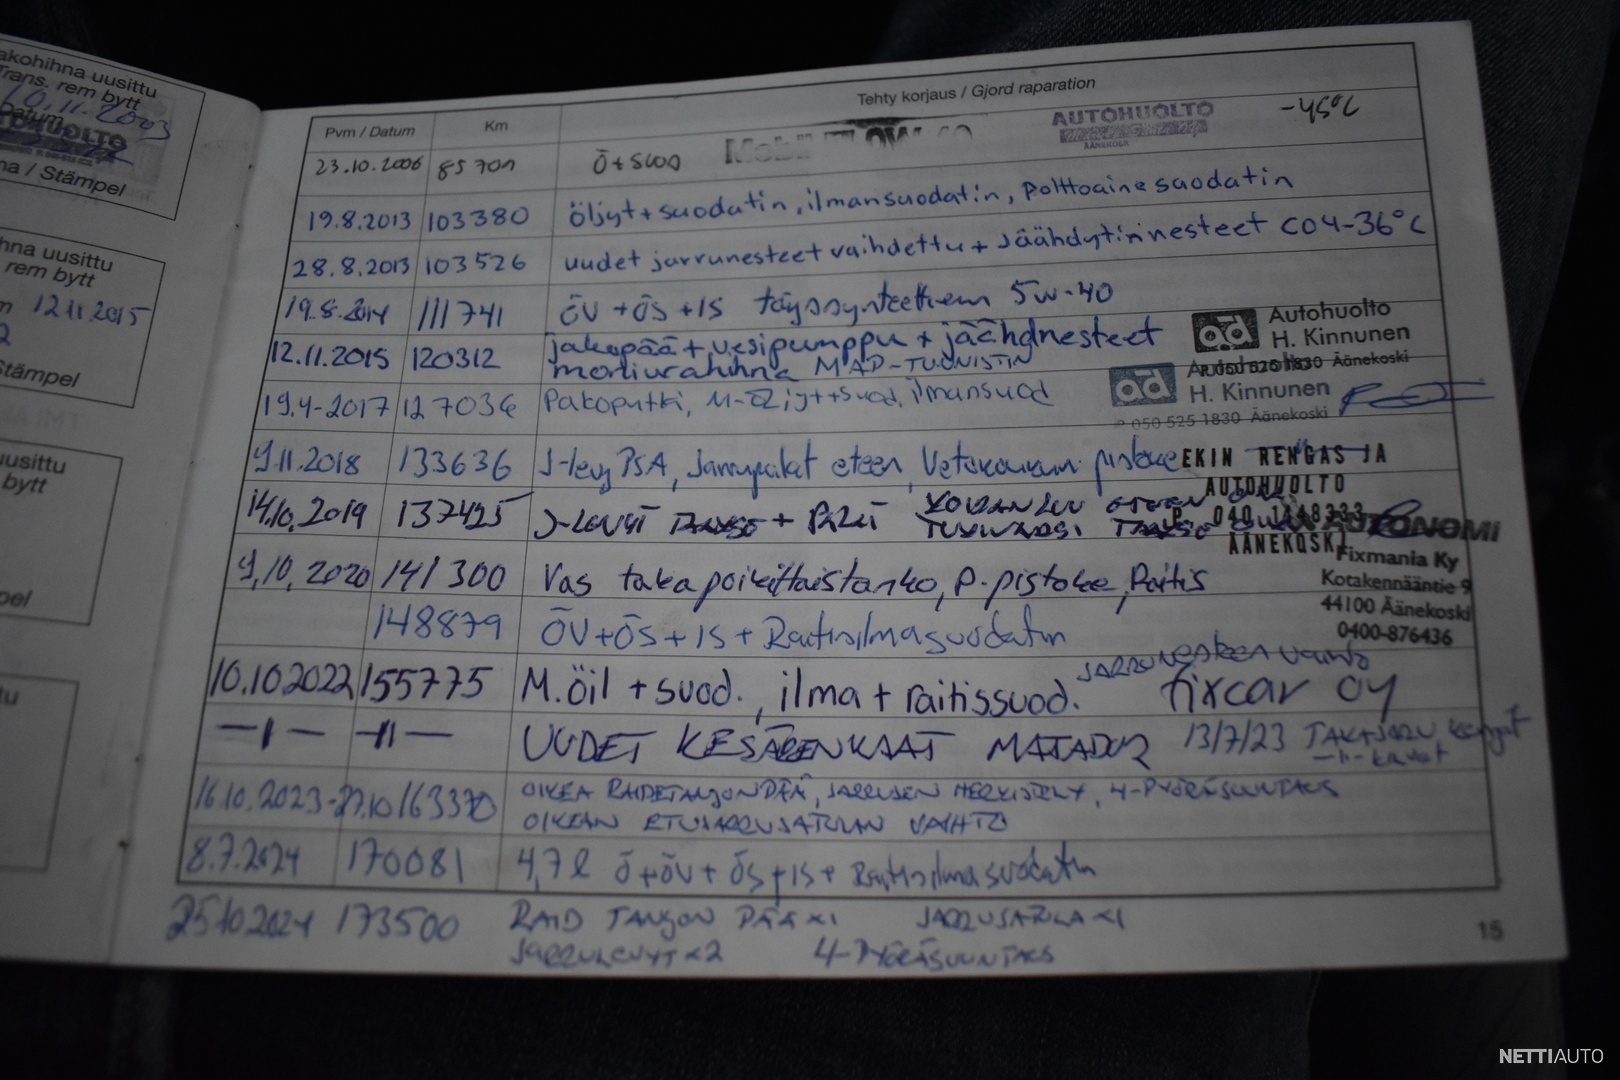 akohihna uusittu
Trans. rem bytt
10.11.2003
Datum
na / Stämpel
hna uusittu
rem bytt
12.11.2015
Stämpel
uusittu
bytt
pel
Pvm / Datum Km Tehty korjaus / Gjord raparation
23.10.2006 85701 Ö+SUOD AUTOHUOLTO -45°C
ÄÄNEKOSKI
19.8.2013 103380 öljyt + suodatin, ilmansuodatin, polttoainesuodatin
28.8.2013 103526 uudet jarrunesteet vaihdettu + Jäähdytinnesteet CO4-36°C
19.8.2014 111741 ÖV + ÖS + IS täyssynteettinen 5W-40
12.11.2015 120312 jakopää + vesipumppu + jäähdnesteet
moniurahihna MAD-TUUNISTIN
ad Autohuolto
H. Kinnunen
P. 050 525 1830 Äänekoski
19.4-2017 127036 Pakoputki, M-Öljyt+suod, ilmansuod
ad Autohuolto
H. Kinnunen
P 050 525 1830 Äänekoski
9.11.2018 133636 J-levy PSA, Jarrupalat eteen,
EKIN RENGAS JA
AUTOHUOLTO
P. 040 1448333
ÄÄNEKOSKI
14.10.2019 137425 J-LEVYT + PALAT
AUTONOMI
Fixmania Ky
Kotakennääntie 9
44100 Äänekoski
0400-876436
9.10.2020 141300 Vas takapoikittaistanko, P-pistoke, Raitis
148879 ÖV+ÖS+IS+Raitisilmasuodatin
10.10.2022 155775 M.öil + suod., ilma + raitissuod. JARRUNESTEEN VAIHTO
fixcar oy
—"— —"— UUDET KESÄRENKAAT MATADOR 13/7/23 TAKAJARRU
16.10.2023-27.10 163370 OIKEA RAIDETANGONPÄÄ, JARRUJEN HERKISTELY, 4-PYÖRÄSUUNTAUS
OIKEAN ETUJARRUSATULAN VAIHTO
8.7.2024 170081 4,7l Ö+ÖV+ÖS+IS+ Raitisilmasuodatin
25.10.2024 173500 RAID TANGON PÄÄ x1 JARRUSATULA x1
JARRULEVYT x2 4-PYÖRÄSUUNTAUS
15
NETTIAUTO